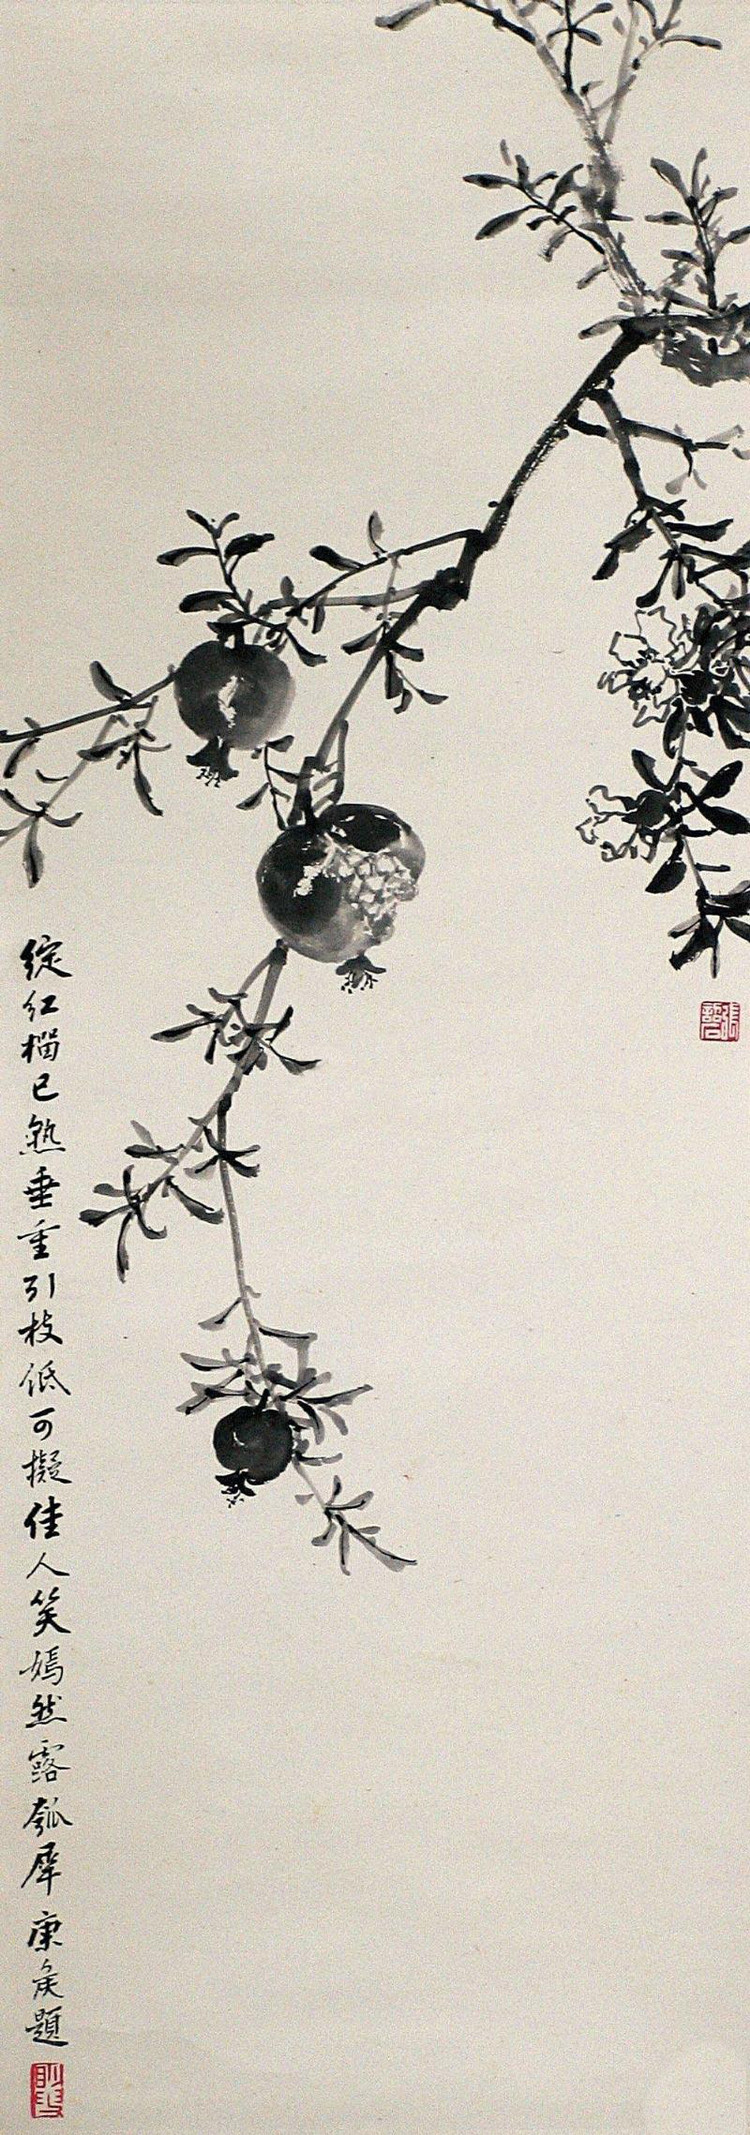 綻紅榴已熟垂重引枝低可擬佳人笑嫣然露瓠犀康侯題